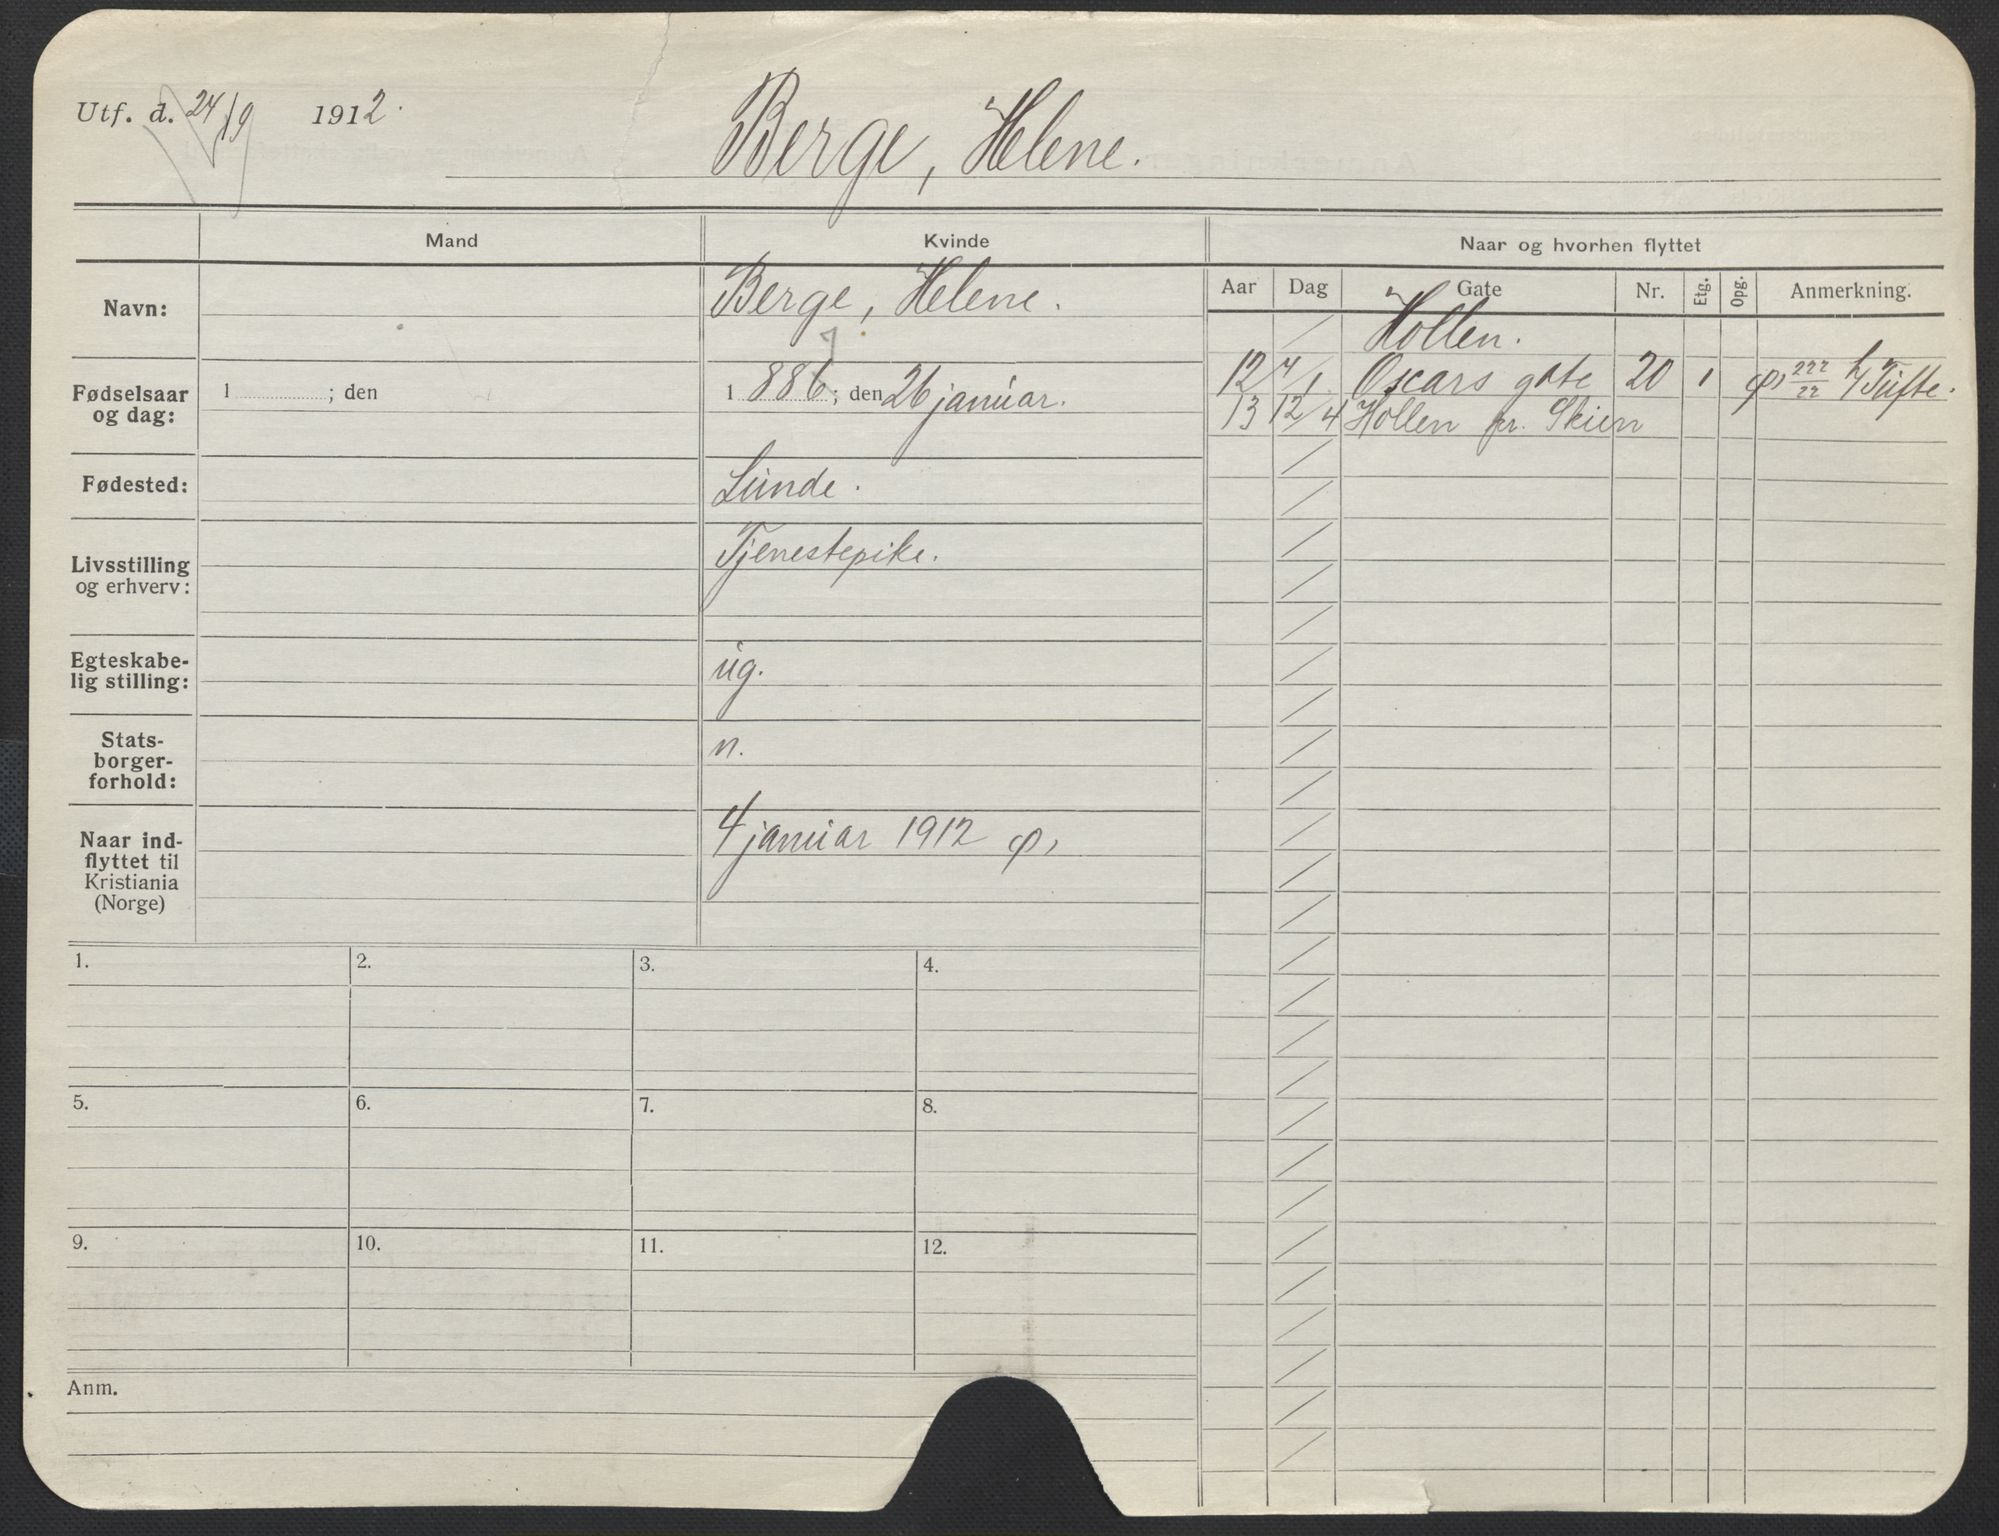 Utf. d. 24/9 1912.
Berge, Helene.
Mand
Kvinde
Naar og hvorhen flyttet
Navn:
Berge, Helene.
Aar Dag Gate Nr. Etg. Opg. Anmerkning.
Hollen.
12 4/1 Oscars gate 20 1 h/ Tufte.
13 12/4 Hollen pr. Skien
Fødselsaar
og dag:
1 ; den
1886; den 26 januar.
7
Fødested:
Lunde.
Livsstilling
og erhverv:
Tjenestepike.
Egteskabe-
lig stilling:
ug.
Stats-
borger-
forhold:
n.
Naar ind-
flyttet til
Kristiania
(Norge)
4 januar 1912
1. 2. 3. 4.
5. 6. 7. 8.
9. 10. 11. 12.
Anm.